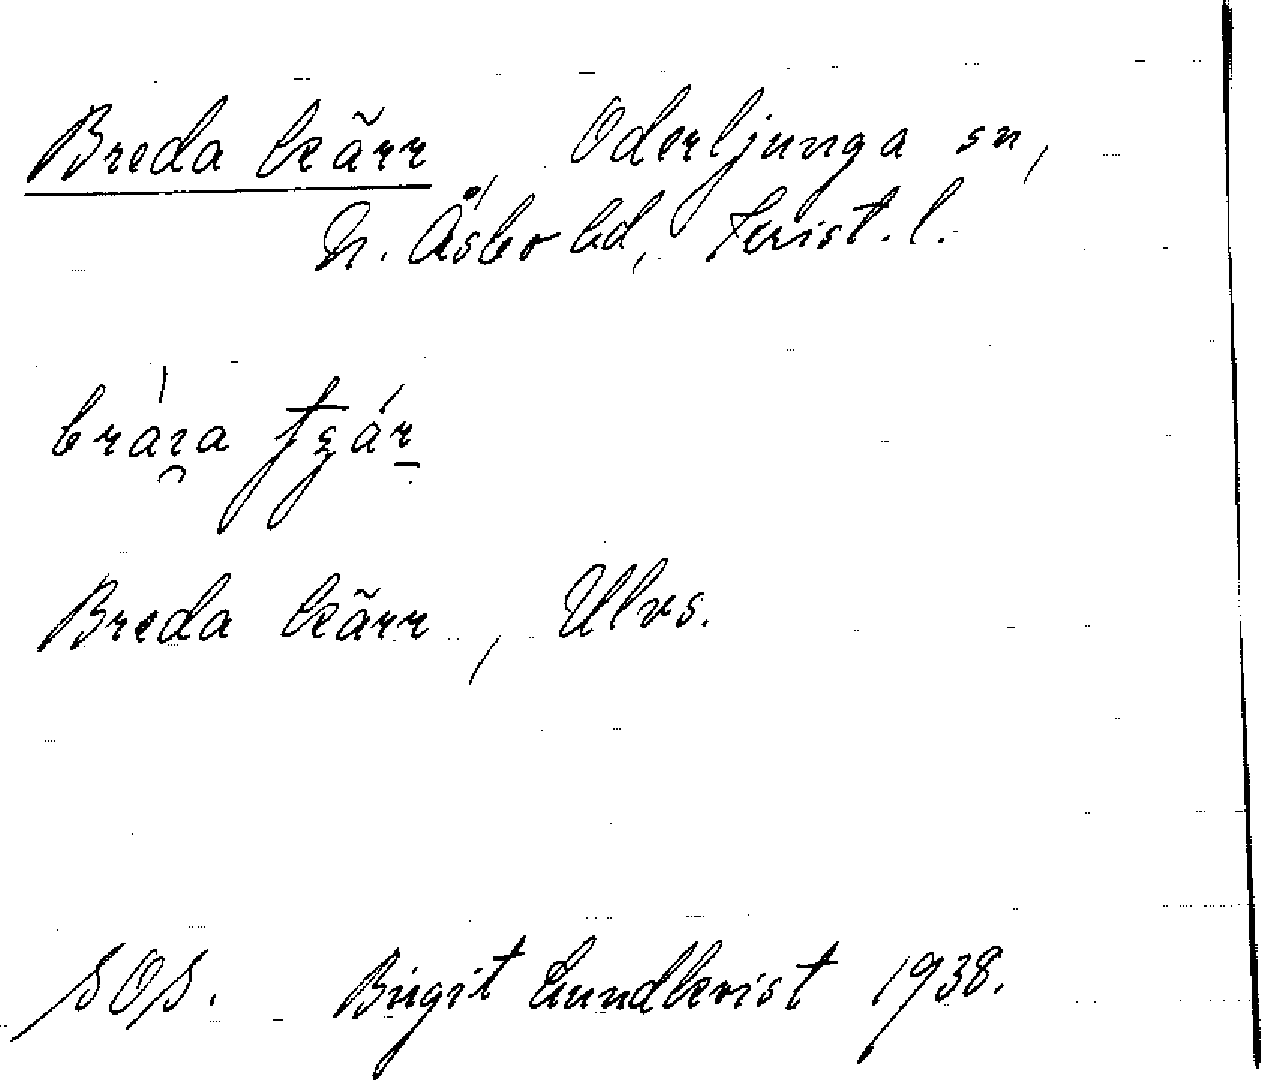 Breda kärr, Oderljunga sn,
N. Åsbo hd, Krist. l.
Breda kärr, Ulvs.
SOS. Birgit Lundkvist 1938.